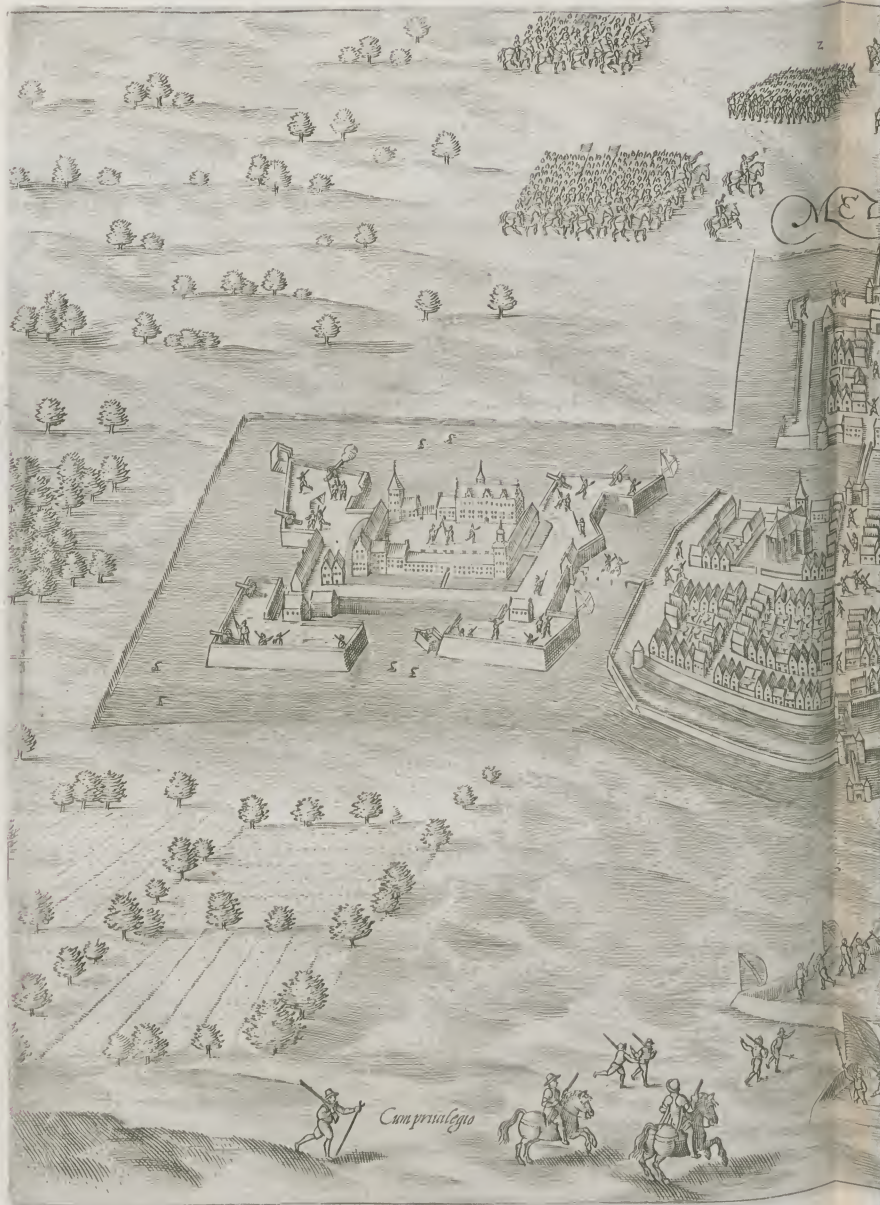 2
ME
Cum priuilegio